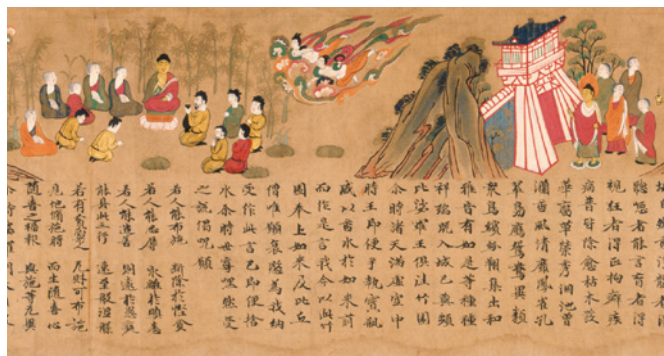 聽瘂者能言盲者得
視狂者得正拘癖疾
病普皆除愈枯木發
華腐草榮秀涸池曾
瀾香風清靡鸞雀孔
翠鳧鴈鴛鴦異類
衆鳥繽紛翔集出和
雅音有如是等種種
祥瑞既入城已與頻
毗娑羅王俱往竹園
尒時諸天滿虛空中
時王即便手執寶瓶
盛以香水於如來前
而作是言我今以此竹
園奉上如來及比丘
僧唯願哀愍為我納
受作此言已即便捨
水尒時世尊嘿然受
之說偈呪願
若人能布施 斷除於慳貪
若人能忍辱 永離於瞋恚
若人能造善 則遠於愚癡
能具此三行 速至般涅槃
若有貧窮人 无財可布施
見他脩施時 而生隨喜心
隨喜之福報 與施等无異